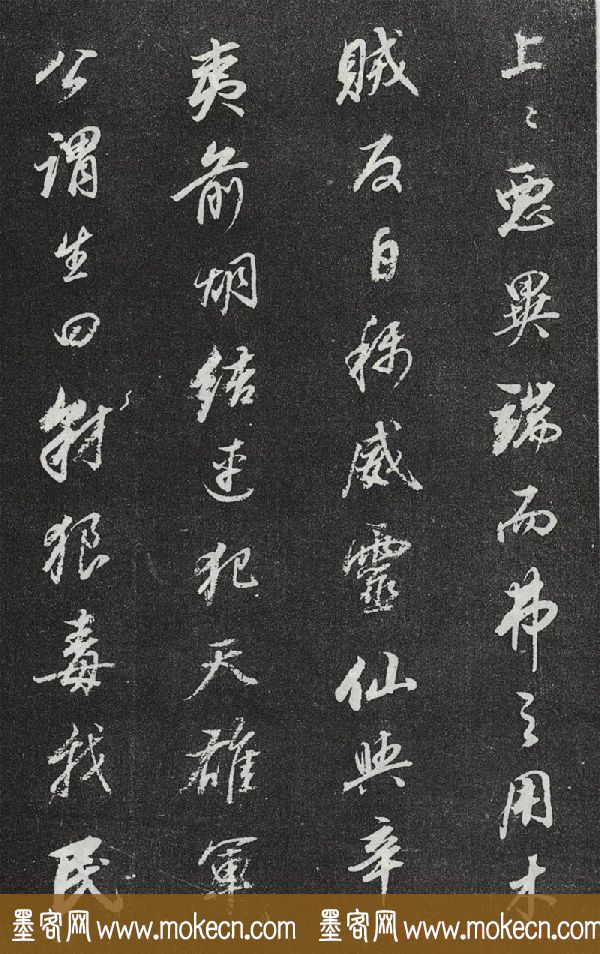 上〻惡異瑞而弗之用木
賊反自稱威靈仙與辛
夷前胡結連犯天雄軍
公謂生曰豺狼毒我民
墨客网 www.mokecn.com 墨客网 www.mokecn.com